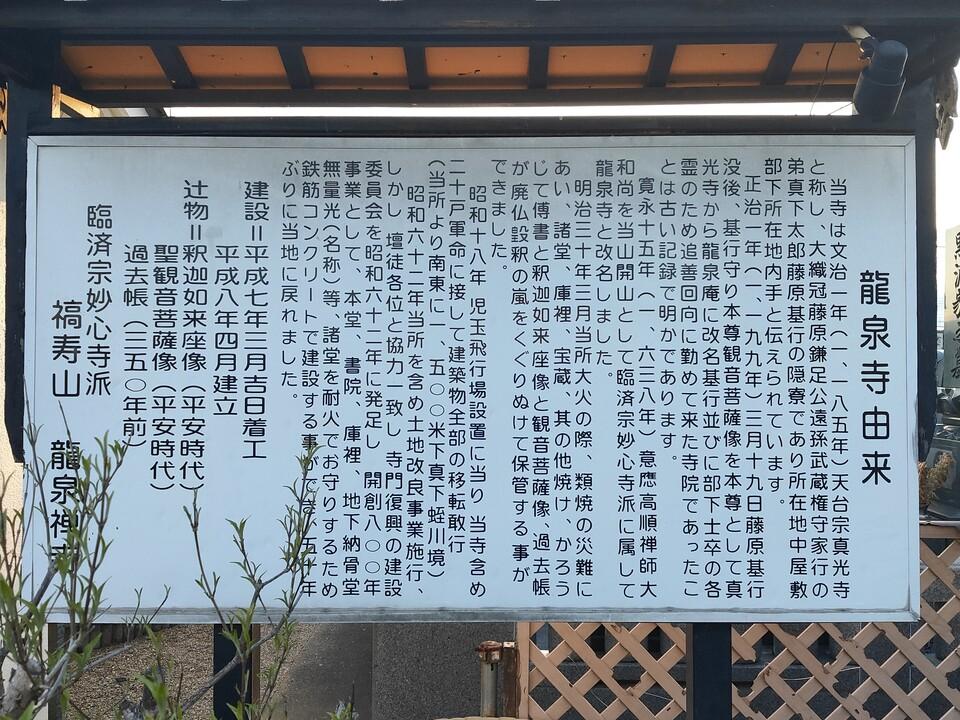 龍泉寺由来
当寺は文治一年（一、一八五年）天台宗真光寺
と称し、大織冠藤原鎌足公遠孫武蔵権守家行の
弟真下太郎藤原基行の隠寮であり所在地中屋敷
部下所在地内手と伝えられています。
正治一年（一、一九九年）三月十九日藤原基行
没後、基行守り本尊観音菩薩像を本尊として真
光寺から龍泉庵に改名基行並びに部下士卒の各
霊のため追善回向に勤めて来た寺院であったこ
とは古い記録で明かであります。
寛永十五年（一、六三八年）意應高順禅師大
和尚を当山開山として臨済宗妙心寺派に属して
龍泉寺と改名しました。
明治三十年三月当所大火の際、類焼の災難に
あい、諸堂、庫裡、宝蔵、其の他焼け、かろう
じて傅書と釈迦如来座像と観音菩薩像、過去帳
が廃仏毀釈の嵐をくぐりぬけて保管する事が
できました。
昭和十八年 児玉飛行場設置に当り 当寺含め
二十戸軍命に接して建築物全部の移転敢行
（当所より南東に一、五〇〇米下真下蛭川境）
昭和六十二年当所を含め土地改良事業施行、
しかし 壇徒各位と協力一致し 寺門復興の建設
委員会を昭和六十二年に発足し 開創八〇〇年
事業として、本堂、書院、庫裡、地下納骨堂
無量光（名称）等、諸堂を耐火でお守りするため
鉄筋コンクリートで建設する事ができ五十年
ぶりに当地に戻れました。
建設＝平成七年三月吉日着工
平成八年四月建立
辻物＝釈迦如来座像（平安時代）
聖観音菩薩像（平安時代）
過去帳（三五〇年前）
臨済宗妙心寺派
禞寿山 龍泉禅寺